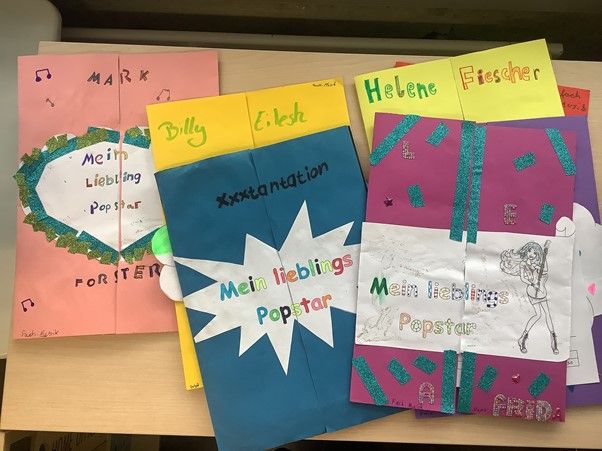 MARK
Mein
Liebling
Popstar
FORSTER
Billy Eilesh
xxxtantation
Mein lieblings
Popstar
Helene Fiescher
L
E
Mein lieblings
Popstar
A
ARID
fach